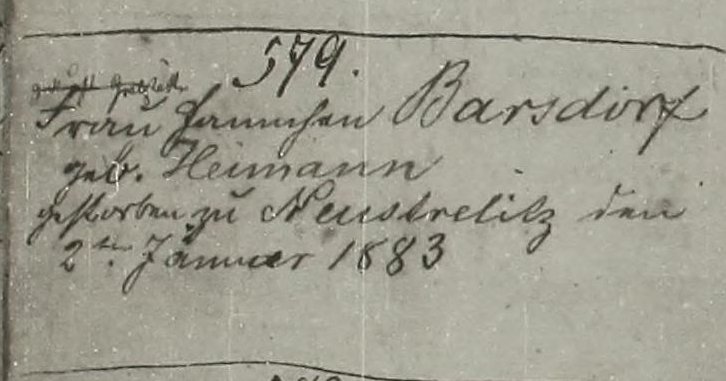 579.
Frau Hannchen Barsdorf
geb. Heimann
gestorben zu Neustrelitz den
2ten Jänner 1883